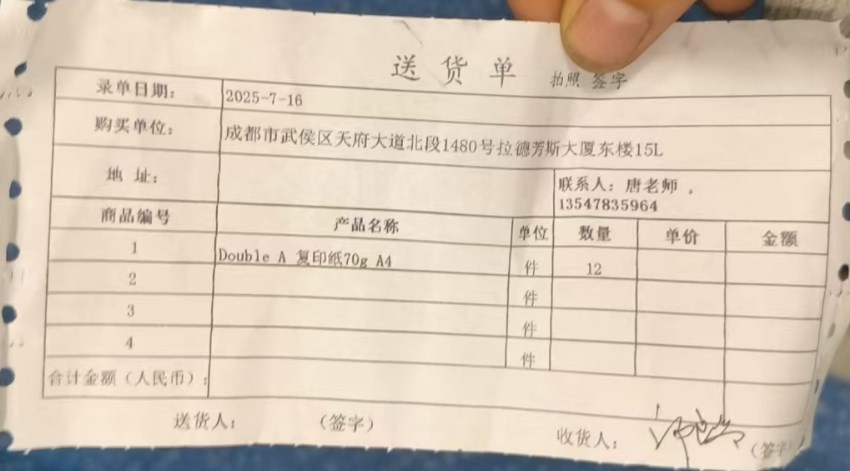 送货单 拍照 签字
录单日期： 2025-7-16
购买单位： 成都市武侯区天府大道北段1480号拉德芳斯大厦东楼15L
地 址： 联系人：唐老师，
13547835964
商品编号 产品名称 单位 数量 单价 金额
1 Double A 复印纸70g A4 件 12
2 件
3 件
4 件
合计金额（人民币）：
送货人： （签字） 收货人： （签字）